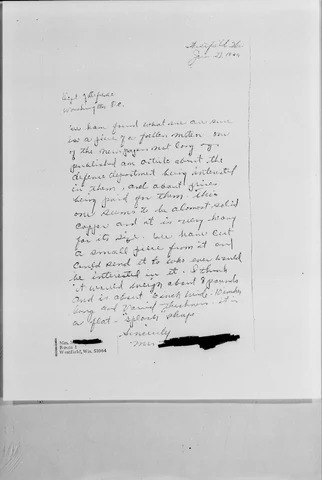 Westfield, Wis
Jan 23 1964
Dept of Defense
Washington D.C.
We have found what we are sure
is a piece of a fallen meteor. One
of the newspapers not long ago
published an article about the
defense department being interested
in them, and about prices
being paid for them. This
one seems to be almost solid
copper and it is very heavy
for its size. We have cut
a small piece from it and
could send it to who ever would
be interested in it. I think
it would weigh about 8 pounds
and is about 6 inch wide 10 inches
long and varied thickness. It is
a flat "splash" shape
Sincerely
Mrs
Mrs.
Route 1
Westfield, Wis. 53964